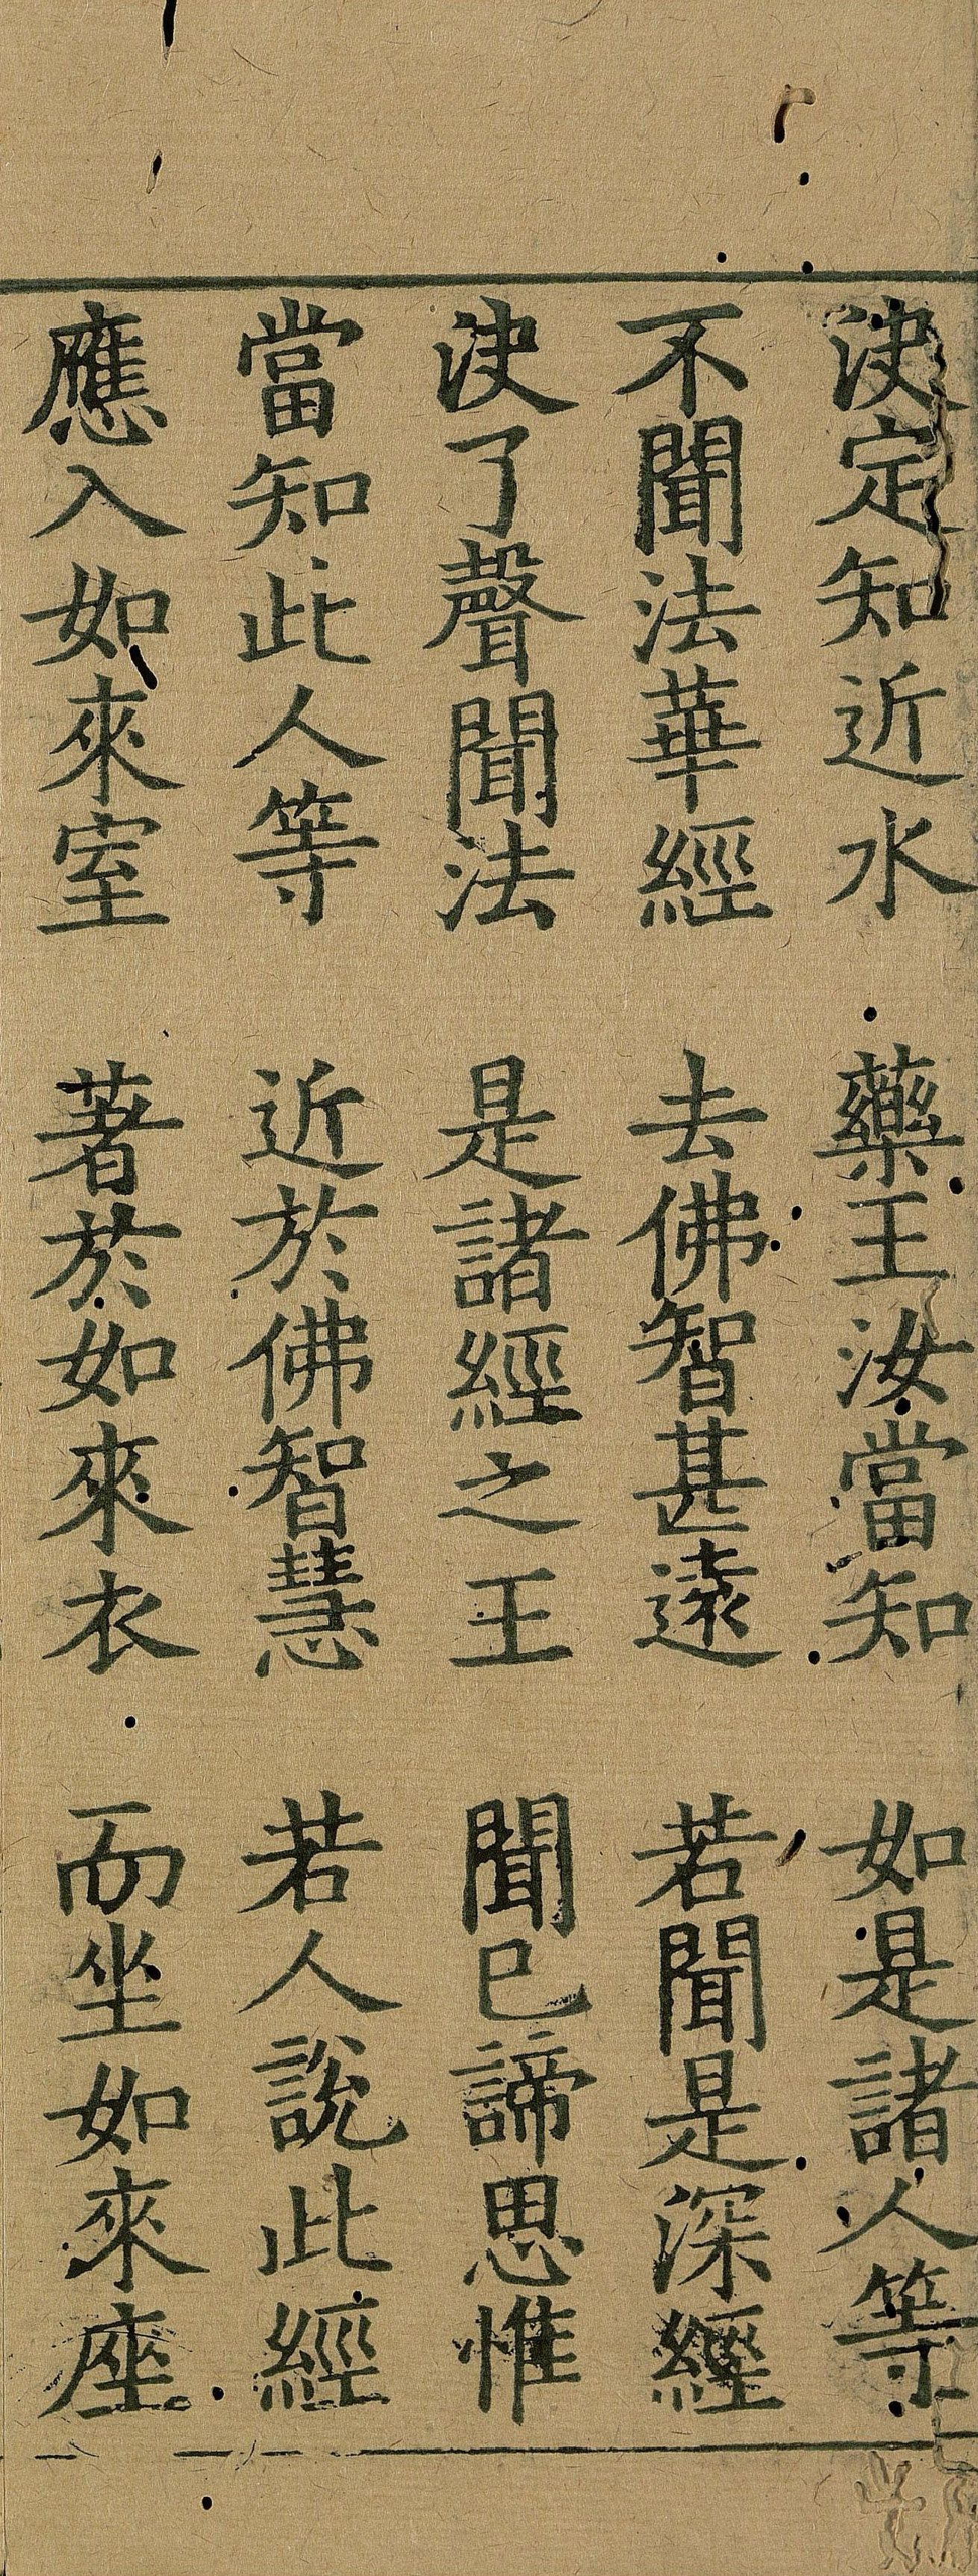 決定知近水　藥王汝當知　如是諸人等
不聞法華經　去佛智甚遠　若聞是深經
決了聲聞法　是諸經之王　聞已諦思惟
當知此人等　近於佛智慧　若人說此經
應入如來室　著於如來衣　而坐如來座